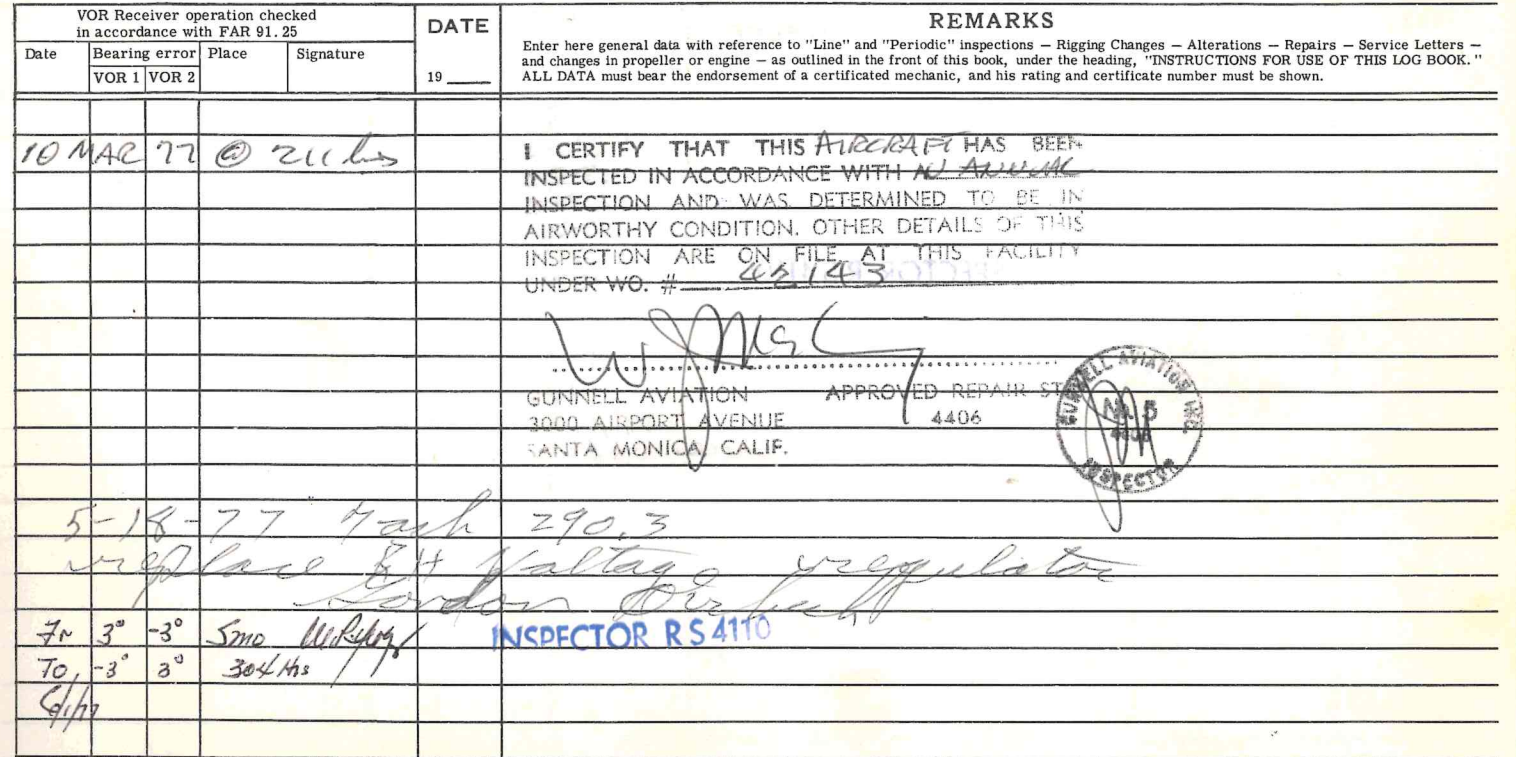 VOR Receiver operation checked
in accordance with FAR 91.25
DATE
REMARKS
Date Bearing error Place Signature
VOR 1 VOR 2
19 ____
Enter here general data with reference to "Line" and "Periodic" inspections — Rigging Changes — Alterations — Repairs — Service Letters —
and changes in propeller or engine — as outlined in the front of this book, under the heading, "INSTRUCTIONS FOR USE OF THIS LOG BOOK."
ALL DATA must bear the endorsement of a certificated mechanic, and his rating and certificate number must be shown.
10 MAR 77 @ 211 hrs
I CERTIFY THAT THIS AIRCRAFT HAS BEEN
INSPECTED IN ACCORDANCE WITH AN ANNUAL
INSPECTION AND WAS DETERMINED TO BE IN
AIRWORTHY CONDITION. OTHER DETAILS OF THIS
INSPECTION ARE ON FILE AT THIS FACILITY
UNDER WO. # 42143
GUNNELL AVIATION APPROVED REPAIR ST
3000 AIRPORT AVENUE 4406
SANTA MONICA, CALIF.
GUNNELL AVIATION INC.
No. 5
4406
INSPECTOR
5-18-77 Tach 290.3
replace RH Voltage regulator
Gordon
INSPECTOR RS4110
Fr 3° -3° Smo
To -3° 3° 304 Hrs
6/1/77